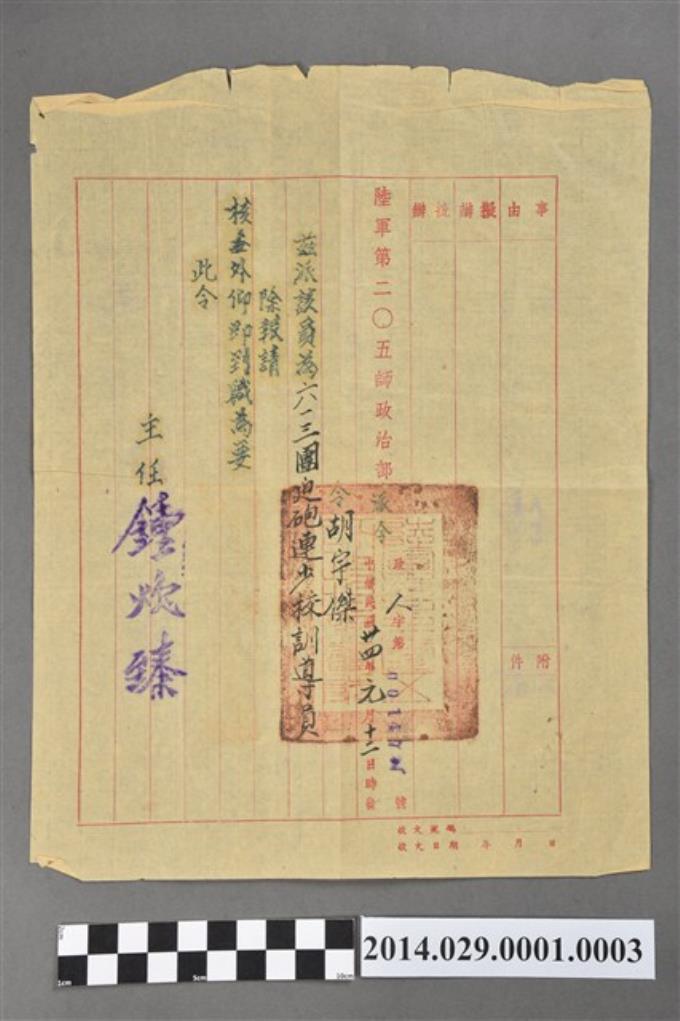 事由
擬辦
批辦
附件
陸軍第二〇五師政治部派令
政人字第
號
中華民國卅四年元月十二日時發
令胡宇傑
茲派該員為六一三團迫砲連少校訓導員
除報請
核委外仰即到職為要
此令
主任
收文號碼
收文日期 年 月 日
1cm
5cm
10cm
2014.029.0001.0003